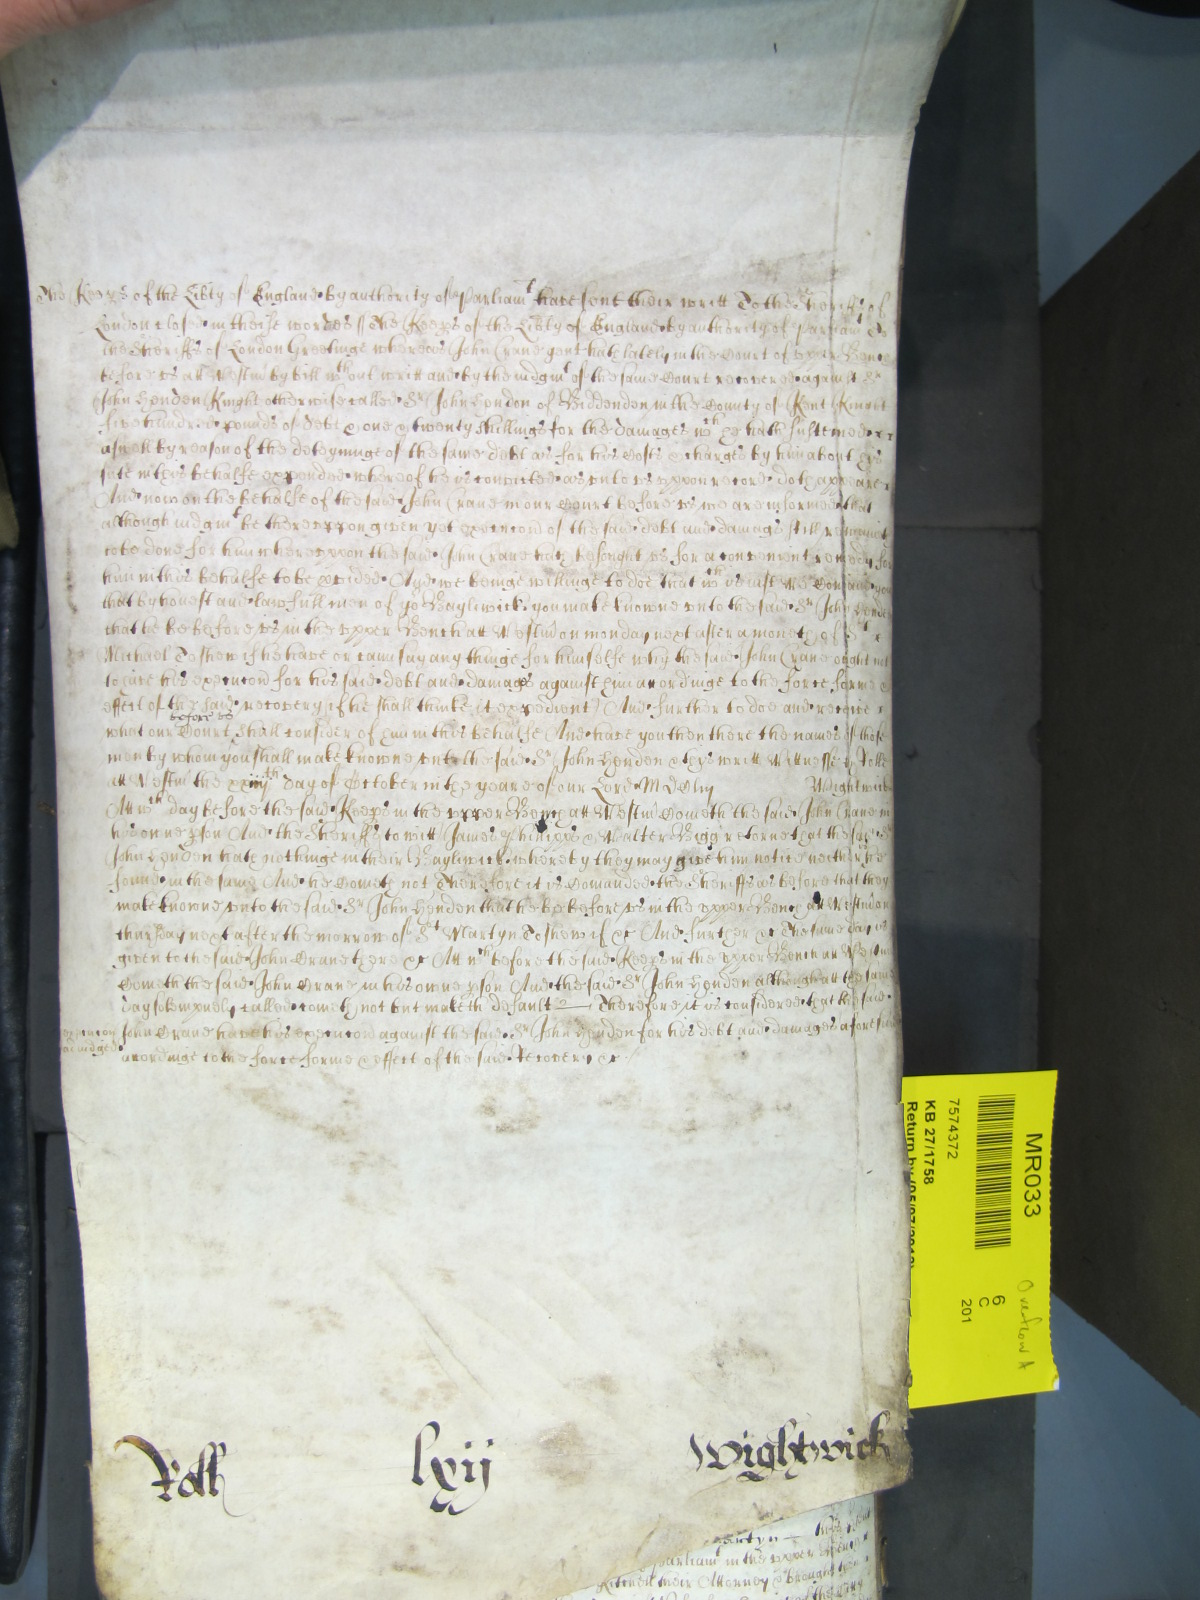 The Keeps of the Libty of England by authority of Parliamt have sent their writt To the Sheriffs of
London closed in theise wordes // The Keeps of the Libty of England by authority of Parliamt To
the Sheriffs of London Greetinge whereas John Crane gent hath lately in the Court of upper Bench
before us att Westm by bill wthout writt and by the iudgmt of the same Court recovered against Sr
John Hendon Knight otherwise called Sr John Hendon of Biddenden in the County of Kent Knight
five hundred pounds of debt & one & twenty shillings for the damages wch he hath susteined
aswell by reason of the deteyninge of the same debt as for his Costs & charges by him about his
sute in this behalfe expended whereof he is convicted as unto us uppon record doth appeare
And now on the behalfe of the said John Crane in our Court before us we are informed that
although iudgmt be thereuppon given yet execucon of the said debt and damags still remaineth
to be done for him whereuppon the said John Crane hath besought us for a convenient remedy for
him in this behalfe to be pvided And we beinge willinge to doe that wch is iust We Comand you
that by honest and lawfull men of yo Bayliwick you make knowne unto the said Sr John Hendon
that he be before us in the upper Bench att Westm on monday next after a moneth of St
Michael To shew if he have or can say any thinge for himselfe why the said John Crane ought not
to have his execucon for his said debt and damags against him accordinge to the force forme &
effect of the said recovery if he shall thinke it expedient And further to doe and receive
before us
what our Court shall consider of him in this behalfe And have you then there the names of those
men by whom you shall make knowne unto the said Sr John Hendon & this writt Wittnesse H Rolle
att Westm the xxiiijth day of October in the yeare of our Lord MDClij Wightwick
Att wch day before the said Keeps in the upper Bench att Westm Cometh the said John Crane in
his owne pson And the Sheriffs to witt James Phillipps & Walter Bigg retorne that the said Sr
John Hendon hath nothinge in their Bayliwick whereby they may give him notice neither is he
found in the same And he Cometh not Therefore it is Comanded the Sheriffs as before that they
make knowne unto the said Sr John Hendon that he be before us in the upper Bench att Westm on
thursday next after the morrow of St Martyn To shew if &c And further &c The same day is
given to the said John Crane there &c Att wch before the said Keeps in the upper Bench att Westm
Cometh the said John Crane in his owne pson And the said Sr John Hendon although att the same
day solempnely called cometh not but maketh default Therefore it is considered that the said
execucon
adiudged
John Crane have his execucon against the said Sr John Hendon for his debt and damages aforesaid
accordinge to the force forme & effect of the said Recovery &c
Roll lxij Wightwick
MR033
7574372
KB 27/1758
Return by (05/07/2018)
6
C
201
Overflow A
Parliamt in the upper Bench
their Attorney & brought